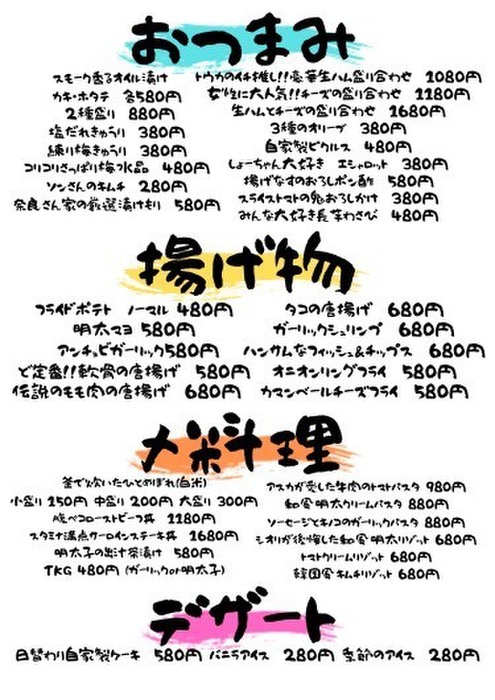 おつまみ
スモーク香るオイル漬け
カキ・ホタテ 各580円
2種盛り 880円
塩だれきゅうり 380円
練り梅きゅうり 380円
コリコリさっぱり梅水晶 480円
ソンさんのキムチ 280円
奈良さん家の厳選漬けもり 580円
トウカのイチ推し!!豪華生ハム盛り合わせ 1080円
女性に大人気!!チーズの盛り合わせ 1180円
生ハムとチーズの盛り合わせ 1680円
3種のオリーブ 380円
自家製ピクルス 480円
しょーちゃん大好き エシャロット 380円
揚げなすのおろしポン酢 580円
スライストマトの鬼おろしかけ 380円
みんな大好き長芋わさび 480円
揚げ物
フライドポテト ノーマル 480円
明太マヨ 580円
アンチョビガーリック580円
ど定番!!軟骨の唐揚げ 580円
伝説のもも肉の唐揚げ 680円
タコの唐揚げ 680円
ガーリックシュリンプ 680円
ハンサムなフィッシュ&チップス 680円
オニオンリングフライ 580円
カマンベールチーズフライ 580円
〆米料理
釜で炊いたひとめぼれ(白米)
小盛り 150円 中盛り 200円 大盛り 300円
腹ペコローストビーフ丼 1180円
スタミナ満点サーロインステーキ丼 1680円
明太子の出汁茶漬け 580円
TKG 480円 (ガーリックor明太子)
アスカが愛した牛肉のトマトパスタ 980円
和風明太クリームパスタ 880円
ソーセージとキノコのガーリックパスタ 880円
シオリが後悔した和風明太リゾット 680円
トマトクリームリゾット 680円
韓国風キムチリゾット 680円
デザート
日替わり自家製ケーキ 580円 バニラアイス 280円 季節のアイス 280円